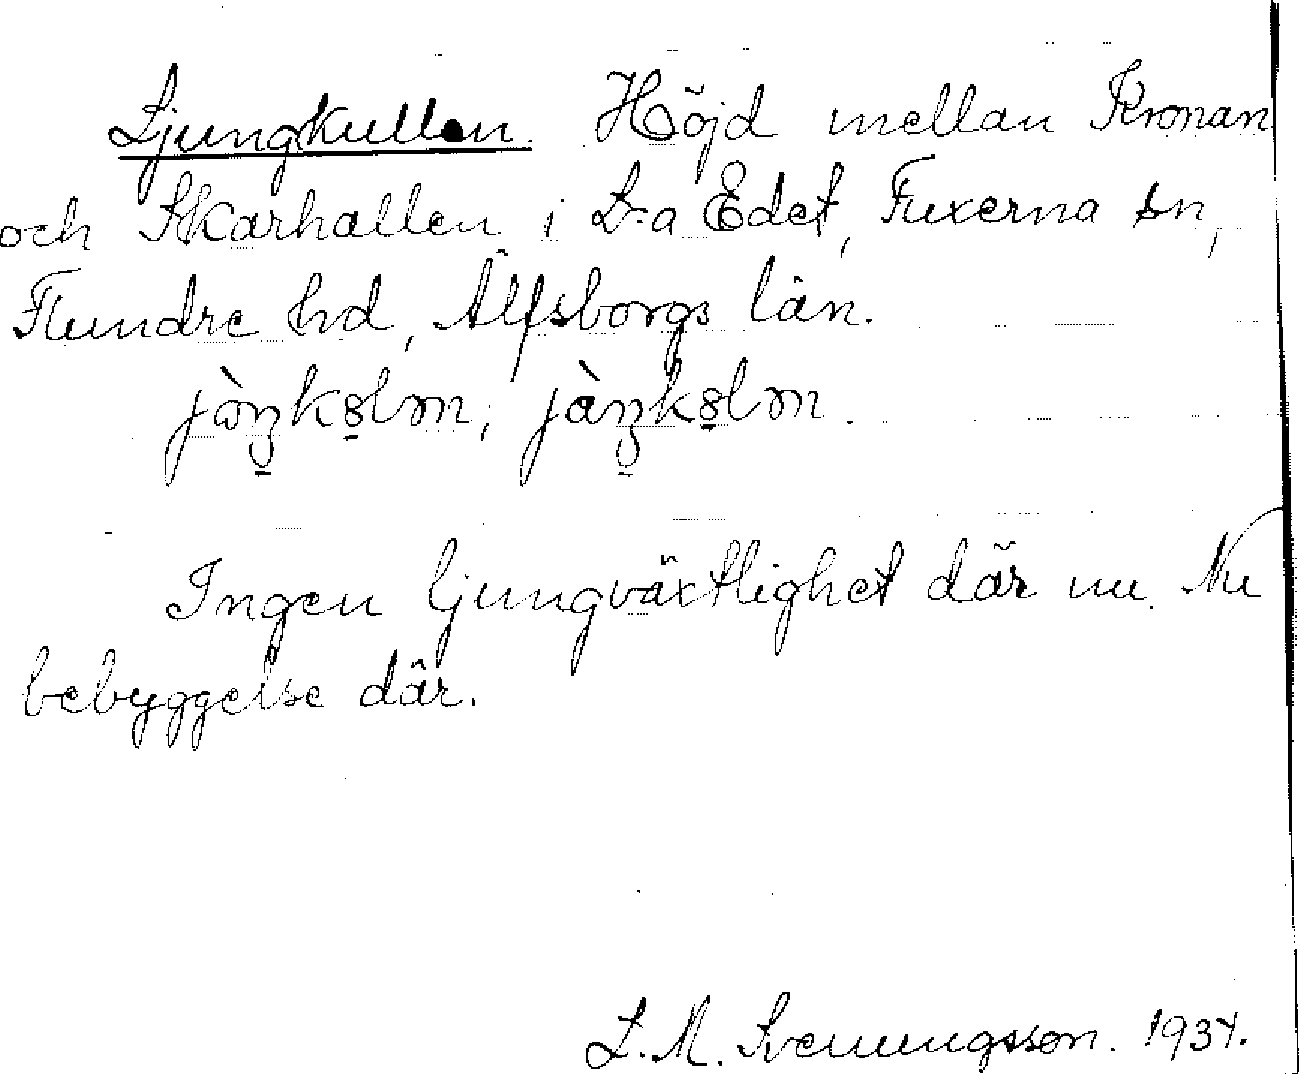 Ljungkullen. Höjd mellan Kronan
och Skarhallen i L:a Edet, Fuxerna sn,
Flundre hd, Älfsborgs län.
Ingen ljungväxtlighet där nu. Nu
bebyggelse där.
L. M. Svenungsson. 1934.